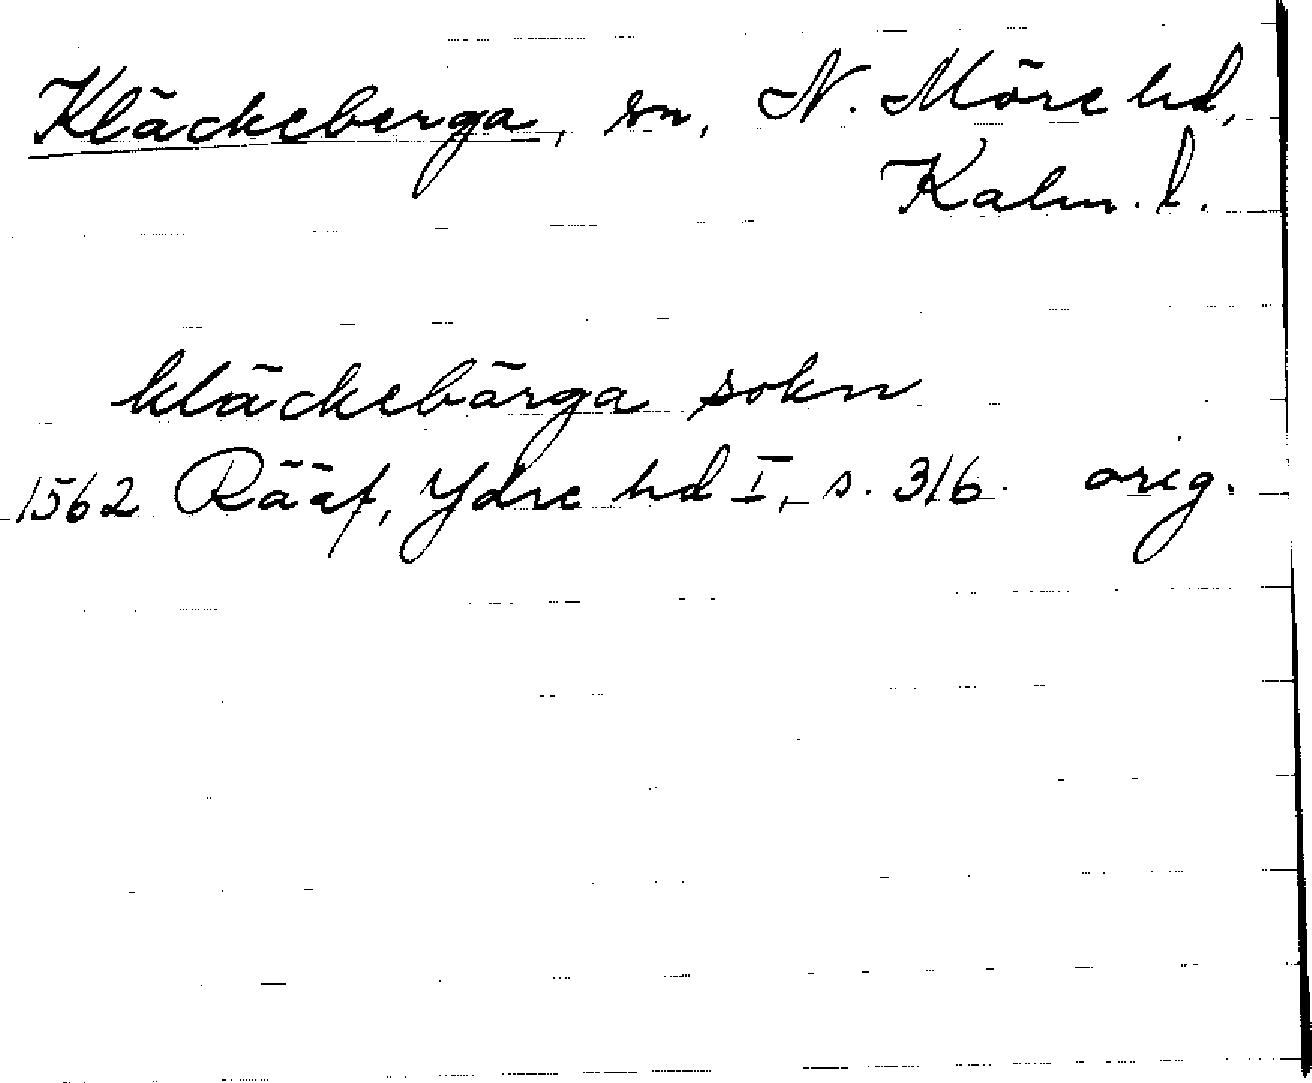 Kläckeberga, sn, N. Möre hd,
Kalm. l.
kläckebärga sokn
1562 Rääf, Ydre hd I, s. 316. orig.